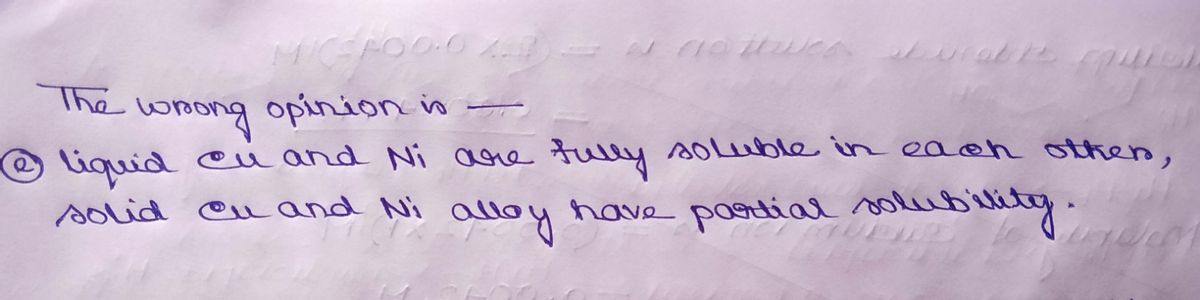 The wrong opinion is —
(e) liquid Cu and Ni are fully soluble in each others,
solid Cu and Ni alloy have partial solubility.